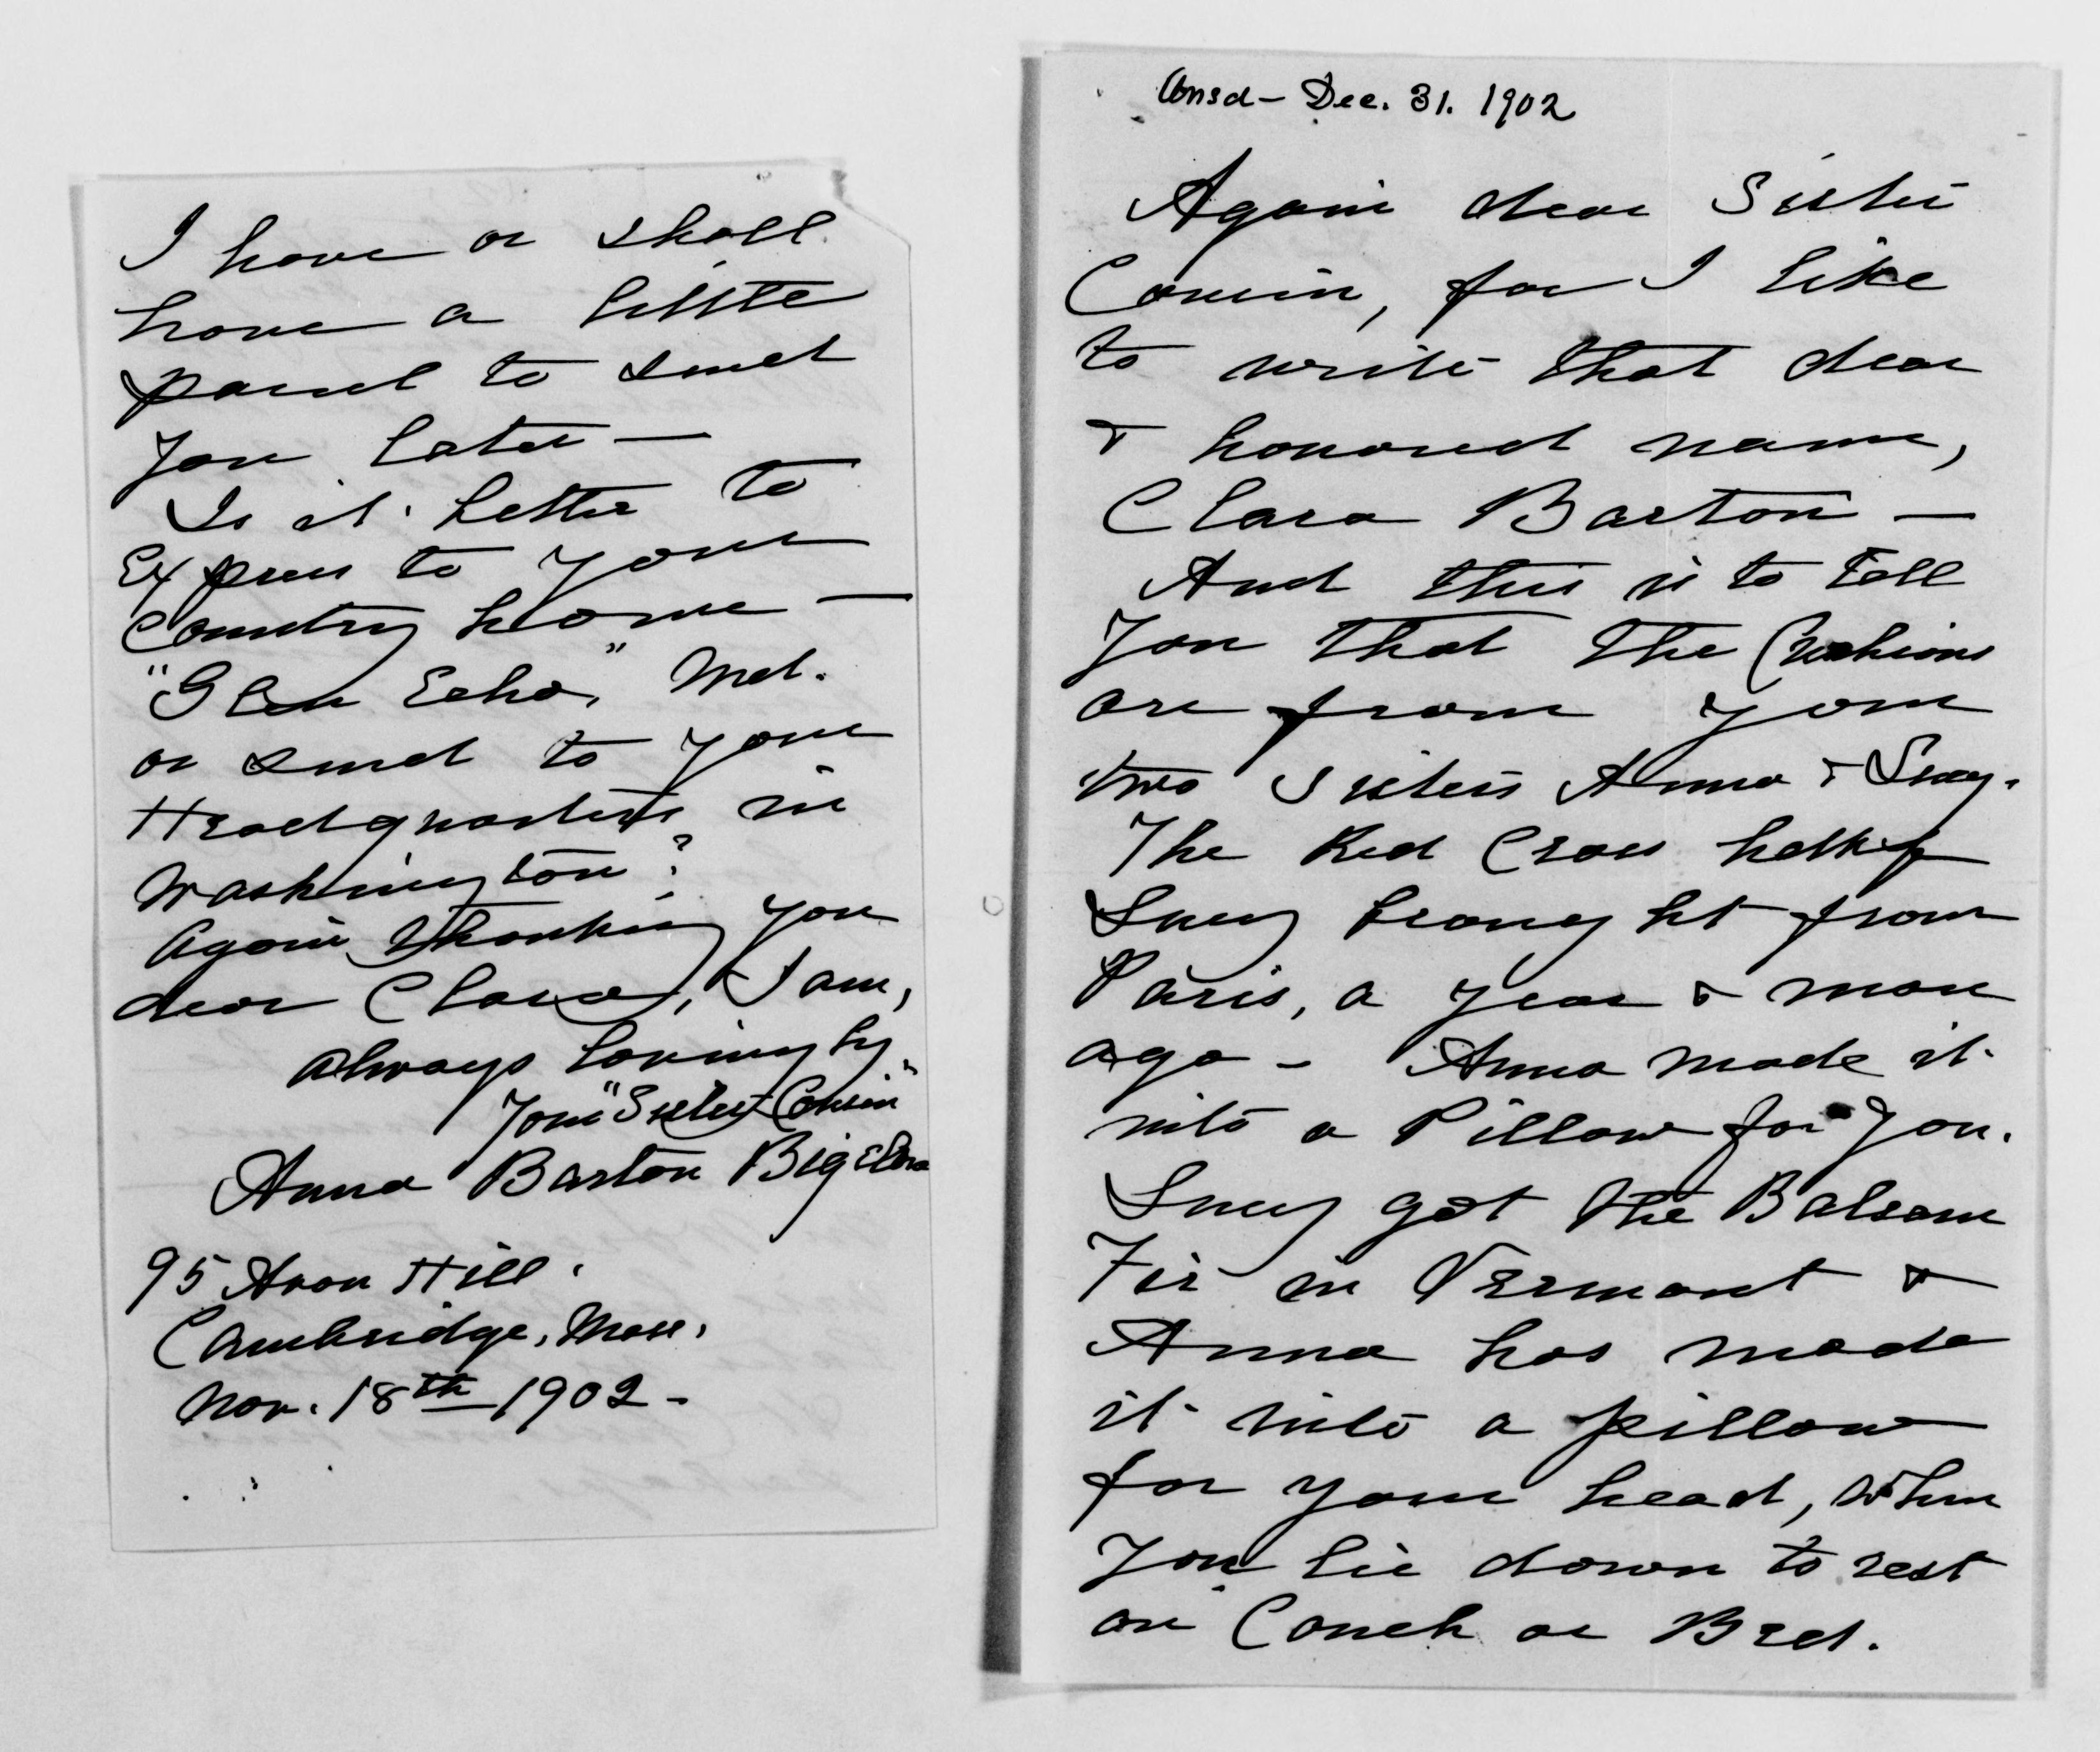 I have or shall
have a little
parcel to send
you later —
Is it better to
Express to your
Country home —
"Glen Echo," Md.
or send to your
Headquarters in
Washington?
Again thanking you
dear Clara, I am,
always lovingly
Your "Sister Cousin"
Anna Barton Bigelow
95 Avon Hill.
Cambridge, Mass.
Nov. 18th 1902 -
Ansd - Dec. 31. 1902
Again dear Sister
Cousin, for I like
to write that dear
& honored name,
Clara Barton —
And this is to tell
you that the Cushions
are from your
two Sisters Anna & Lucy.
The Red Cross hdkf
Lucy brought from
Paris, a year & more
ago - Anna made it
into a Pillow for you.
Lucy got the Balsam
Fir in Vermont &
Anna has made
it into a pillow
for your head, when
you lie down to rest
on Couch or Bed.